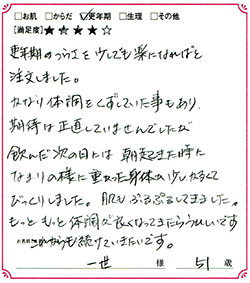 □お肌 □からだ ☑更年期 □生理 □その他
[満足度]★★★★☆
更年期のつらさを少しでも楽になればと
注文しました。
かなり体調をくずしていた事もあり、
期待は正直していませんでしたが
飲んだ次の日には朝起きた時に
なまりの様に重たかった身体が少しかるくて
びっくりしました。肌もぷるぷるしてきました。
もっともっと体調が良くなってきたらうれしいです
これからも続けていきたいです。
お名前
一世 様 51 歳